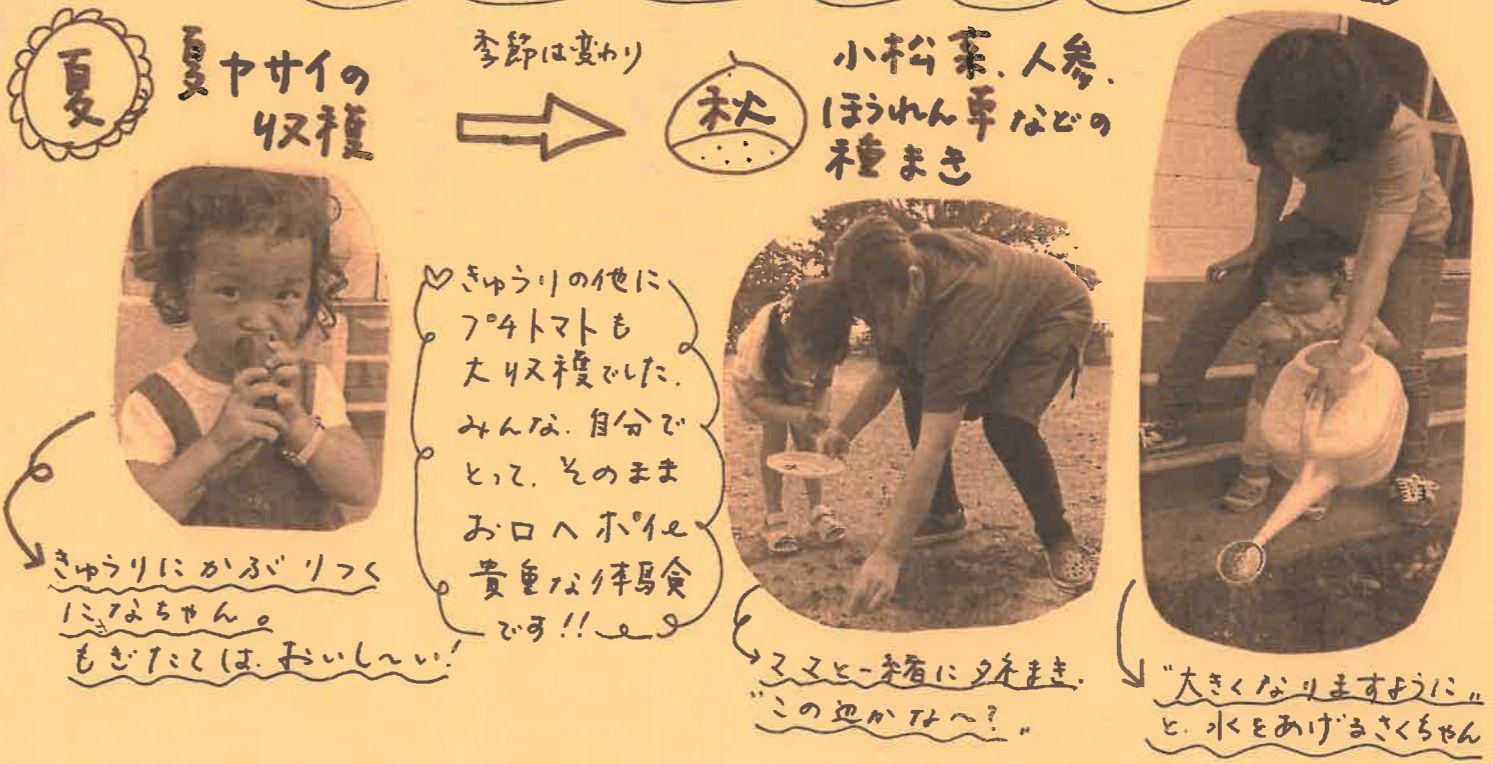 夏
夏ヤサイの
収穫
季節は変わり
秋
小松菜、人参、
ほうれん草などの
種まき
きゅうりの他に
プチトマトも
大収穫でした。
みんな、自分で
とって、そのまま
お口へポイ
貴重な体験
です!!
きゅうりにかぶりつく
になちゃん。
もぎたては、おいし~い!
ママと一緒にタネまき。
"この辺かな~?"
"大きくなりますように"
と、水をあげるさくちゃん